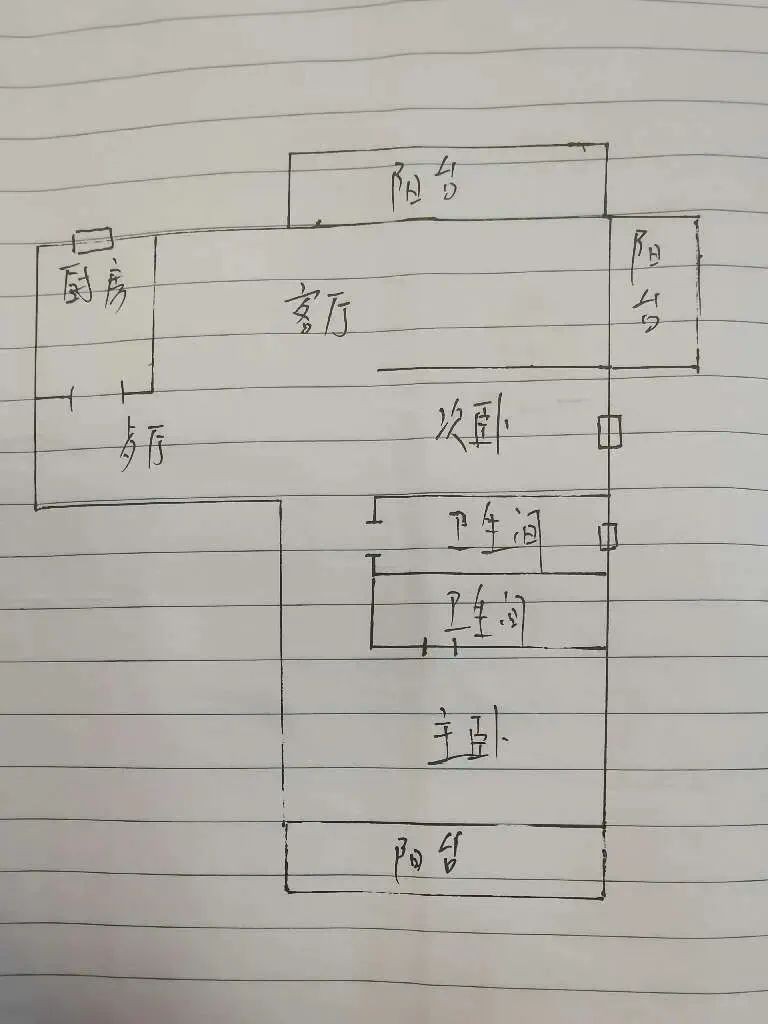 阳台
阳台
厨房
客厅
歺厅
次卧
卫生间
卫生间
主卧
阳台